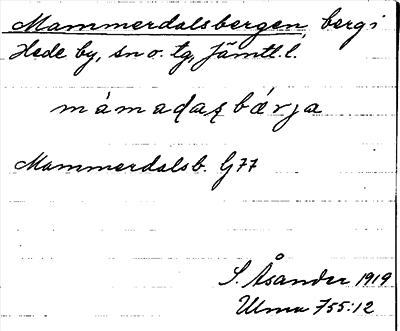 Mammerdalsbergen, berg i
Hede by, sn o. tg, Jämtl. l.
mámadaʂbǽrja
Mammerdalsb. G77
S. Åsander 1919
Ulma 755:12